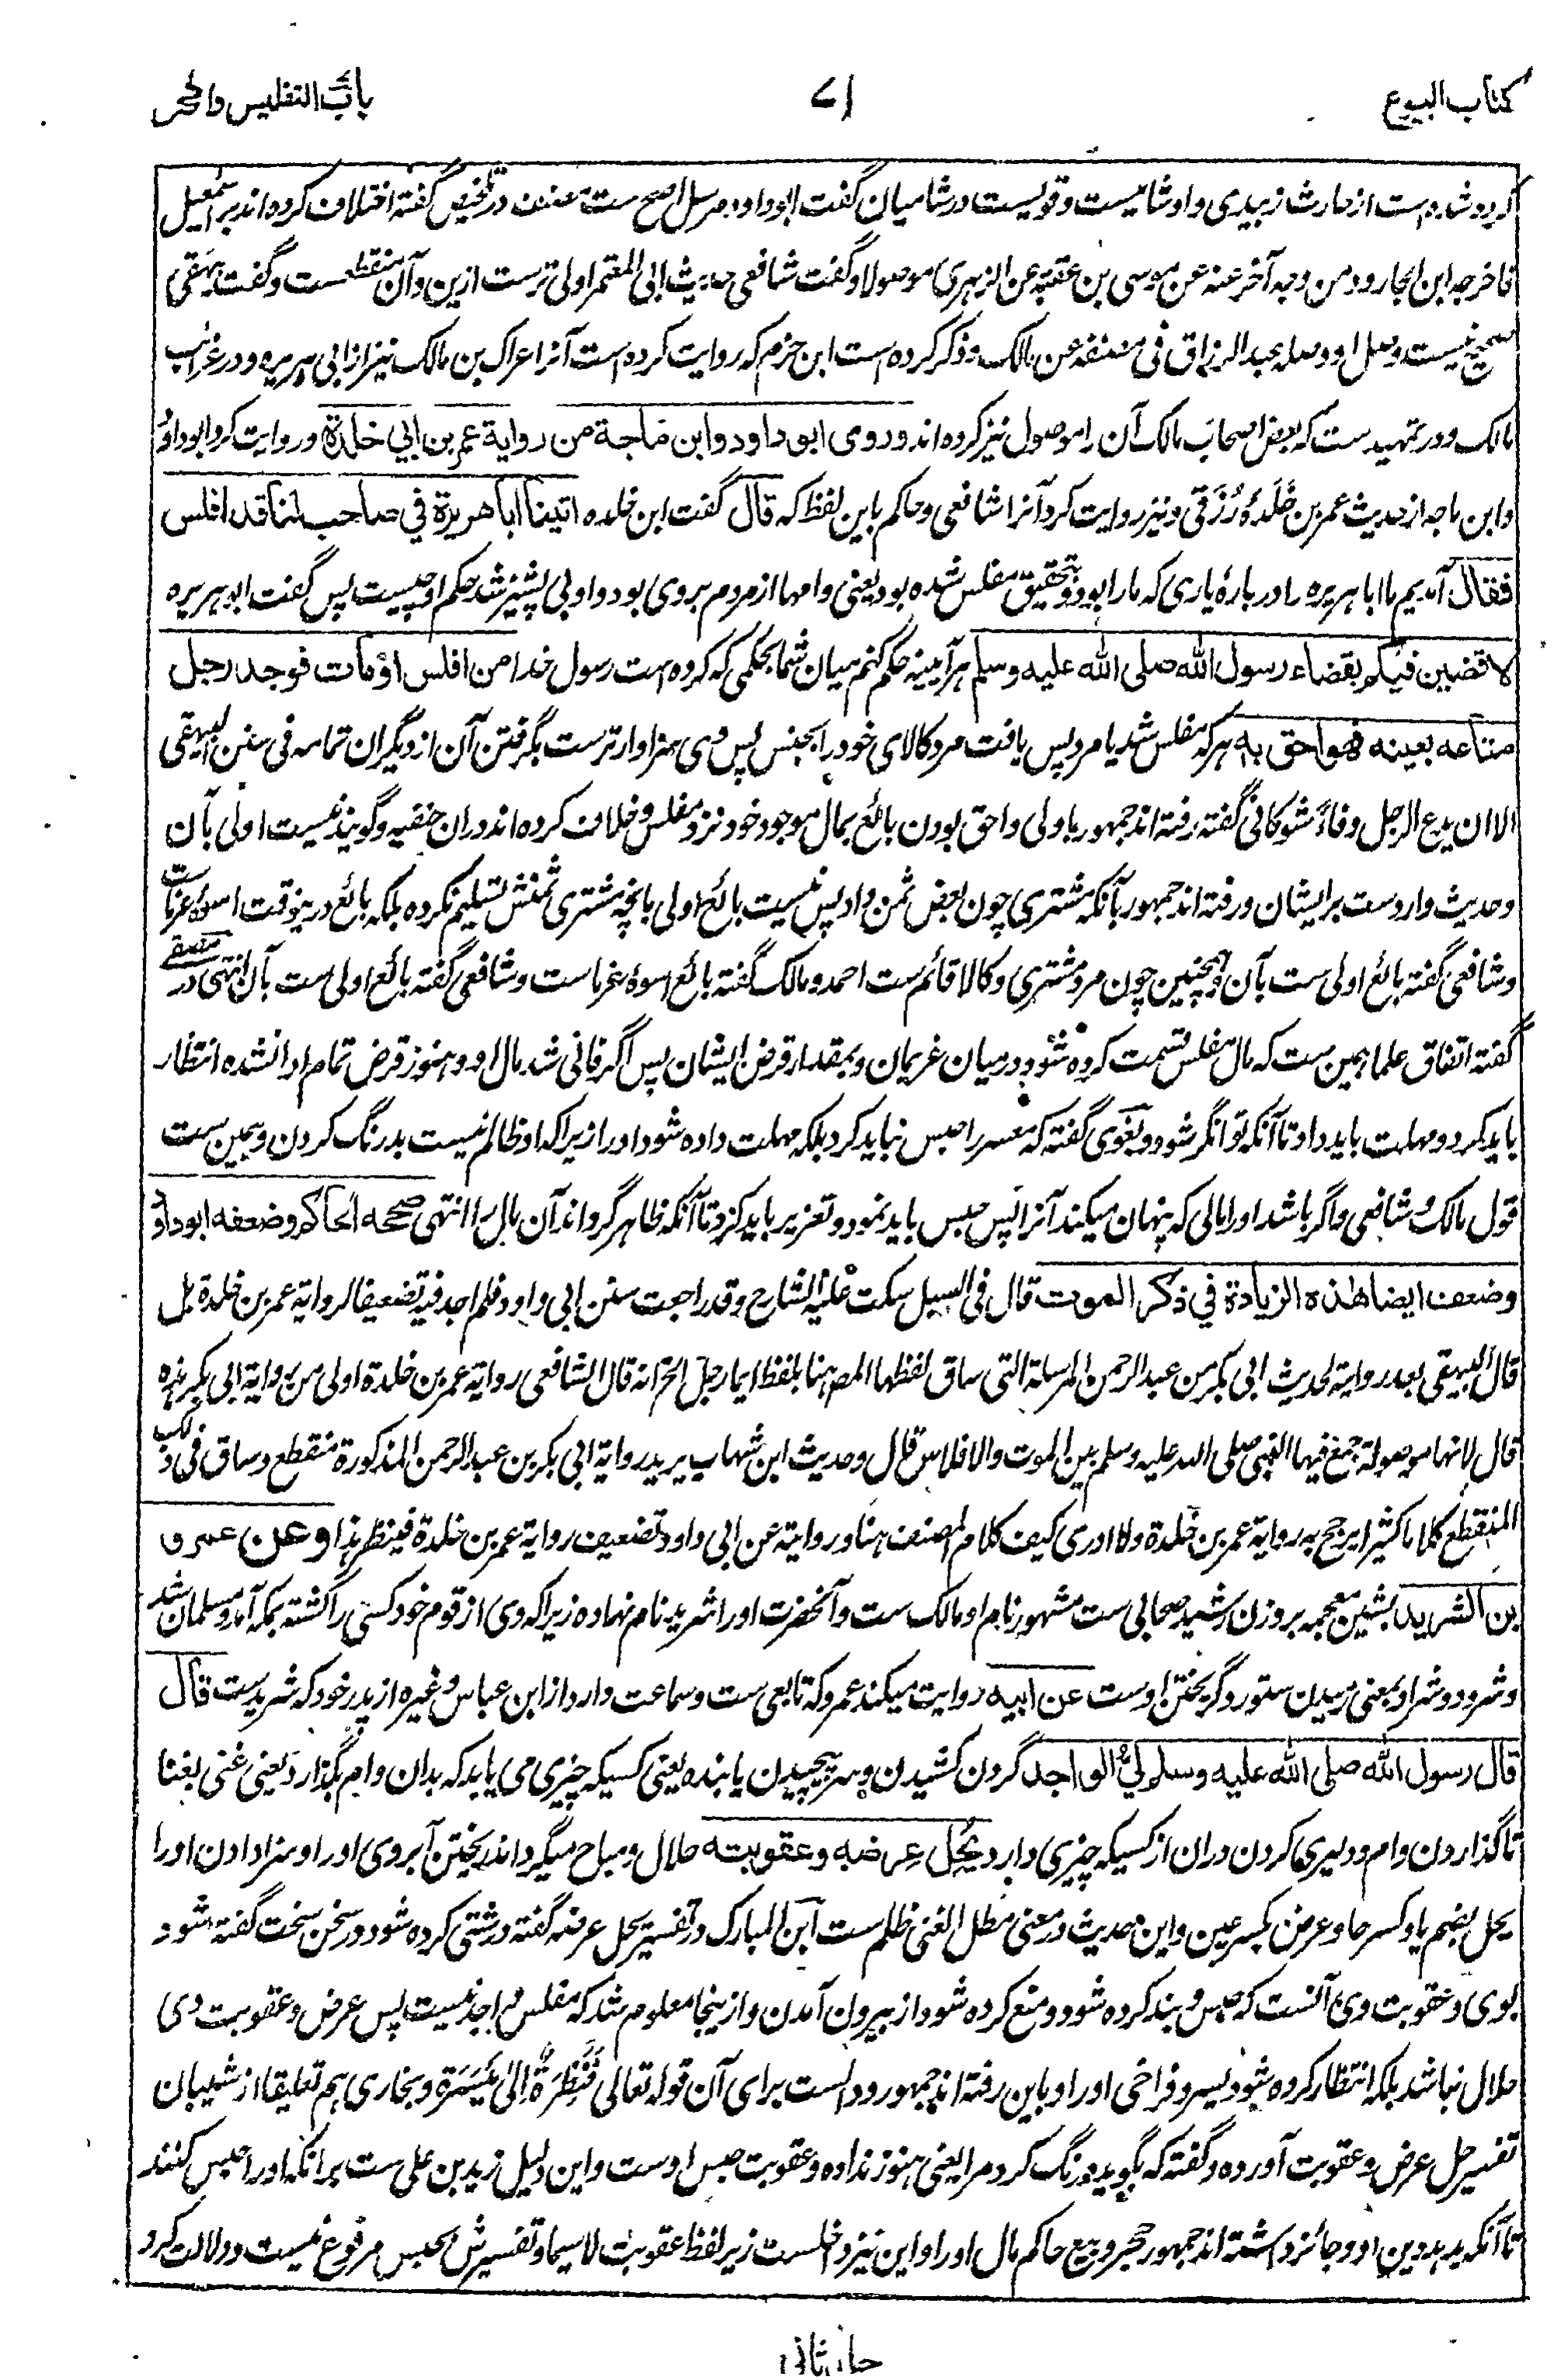 کتاب البیوع
۷۱
باب التفلیس والحجر
کرده شده است از حارث زبیدی و او شامیست و قویست در شامیان گفت ابوداود مرسل اصح ست معنف در تلخیص گفته اختلاف کرده اند بر اسمعیل
فاخرجه ابن الجارود من وجه آخر عنه عن موسی بن عقبة عن الزهری موصولا و گفت شافعی حدیث ابی المعتمر اولی ترست ازین و آن منقطعست و گفت بیهقی
صحیح نیست وصل او وصله عبد الرزاق فی مصنفه عن مالک و ذکر کرده است ابن حزم که روایت کرده است آنرا عراک بن مالک نیز از ابی هریره و در غرائب
مالک و در تمهید ست که بعض اصحاب مالک آن را موصول نیز کرده اند وروی ابو داود وابن ماجة من روایة عمر بن ابی خلدة و روایت کرد ابوداؤد
و ابن ماجه از حدیث عمر بن خَلَدهٔ زُرَقی و نیز روایت کرد آنرا شافعی و حاکم باین لفظ که قال گفت ابن خلده اتینا ابا هریرة فی صاحب لنا قد افلس
فقال آمدیم ما ابا هریره را در بارهٔ یاری که مارا بود و بتحقیق مفلس شده بود یعنی وامها از مردم بر وی بود و او بی پشیز شد حکم او چیست پس گفت ابوهریره
لاقضین فیکم بقضاء رسول الله صلی الله علیه وسلم هر آیینه حکم کنم میان شما بحکمی که کرده است رسول خدا من افلس او مات فوجد رجل
متاعه بعینه فهو احق به هر که مفلس شد یا مرد پس یافت مرد کالای خود را بجنس پس وی سزاوار ترست بگرفتن آن از دیگران تمامه فی سنن البیهقی
الا ان یدع الرجل وفاءً شوکانی گفته رفته اند جمهور باولی و احق بودن بائع بمال موجود خود نزد مفلس و خلاف کرده اند دران حنفیه و گویند نیست اولی بآن
و حدیث واردست بر ایشان و رفته اند جمهور بآنکه مشتری چون بعض ثمن داد پس نیست بائع اولی بانچه مشتری ثمنش تسلیم نکرده بلکه بائع درینوقت اسوهٔ غرماست
و شافعی گفته بائع اولی ست بآن و همچنین چون مرد مشتری و کالا قائم ست احمد و مالک گفته بائع اسوهٔ غرماست و شافعی گفته بائع اولی ست بآن انتهی در مصفی
گفته اتفاق علما بهمین ست که مال مفلس قسمت کرده شود در میان غریمان و بمقدار قرض ایشان پس اگر فانی شد مال او و هنوز قرض تمام ادا نشده انتظار
باید کرد و مهلت باید داد تا آنکه توانگر شود و بغوی گفته که معسر را حبس نباید کرد بلکه مهلت داده شود او را زیرا که او ظالم نیست بدرنگ کردن و همین ست
قول مالک و شافعی و اگر باشد او را مالی که پنهان میکند آنرا پس حبس باید نمود و تعزیر باید کرد تا آنکه ظاهر گرداند آن مال را انتهی صححه الحاکم وضعفه ابوداود
وضعف ایضا هذه الزیادة فی ذکر الموت قال فی السبل سکت علیه الشارح وقد راجعت سنن ابی داود فلم اجد فیه تضعیفا لروایة عمر بن خلدة بل
قال البیهقی بعد روایته لحدیث ابی بکر بن عبد الرحمن المرسلة التی ساق لفظها المص هنا بلفظ ایما رجل الخ انه قال الشافعی روایة عمر بن خلدة اولی من روایة ابی بکر هذه
قال لانها موصولة جمع فیها النبی صلی الله علیه وسلم بین الموت والافلاس قال وحدیث ابن شهاب یرید روایة ابی بکر بن عبد الرحمن المذکورة منقطع وساق فی ذلک
المنقطع کلاما کثیرا یرجح به روایة عمر بن خلدة ولا ادری کیف کلام المصنف هنا وروایته عن ابی داود تضعیف روایة عمر بن خلدة فینظر هذا وعن عمرو
بن الشرید بشین معجمه بروزن رشید صحابی ست مشهور نام او مالک ست و آنحضرت او را شرید نام نهاده زیرا که وی از قوم خود کسی را کشته بمکه آمد و مسلمان شد
و شرود و شراد بمعنی رمیدن ستور و گریختن اوست عن ابیه روایت میکند عمرو که تابعی ست و سماعت دارد از ابن عباس و غیره از پدر خود که شریدست قال
قال رسول الله صلی الله علیه وسلم لیّ الواجد گردن کشیدن و سر پیچیدن یابنده یعنی کسیکه چیزی می یابد که بدان وام بگذارد یعنی غنی بغنا
تا گذاردن وام و دلیری کردن دران از کسیکه چیزی دارد یُحل عرضه وعقوبته حلال و مباح میگرداند ریختن آبروی او را و سزا دادن او را
یحل بضم یا و کسر حا و عرض بکسر عین و این حدیث در معنی مطل الغنی ظلم ست ابن المبارک در تفسیر یحل عرضه گفته درشتی کرده شود و سخن سخت گفته شود
بوی و عقوبت وی آنست که حبس و بند کرده شود و منع کرده شود از بیرون آمدن و ازینجا معلوم شد که مفلس واجد نیست پس عرض و عقوبت وی
حلال نباشد بلکه انتظار کرده شود یسر و فراخی او را و باین رفته اند جمهور و دالست برای آن قوله تعالی فَنَظِرَةٌ اِلیٰ مَیْسَرَة و بخاری هم تعلیقا از سفیان
تفسیر حل عرض و عقوبت آورده و گفته که بگوید درنگ کرد مرا یعنی هنوز نداده و عقوبت حبس اوست و این دلیل زید بن علی ست بر آنکه او را حبس کنند
تا آنکه بدهد دین او و جائز داشته اند جمهور حجر و بیع حاکم مال او را و این نیز داخلست زیر لفظ عقوبت لاسیما و تفسیرش بحبس مرفوع نیست و دلالت کرد
جلد ثانی